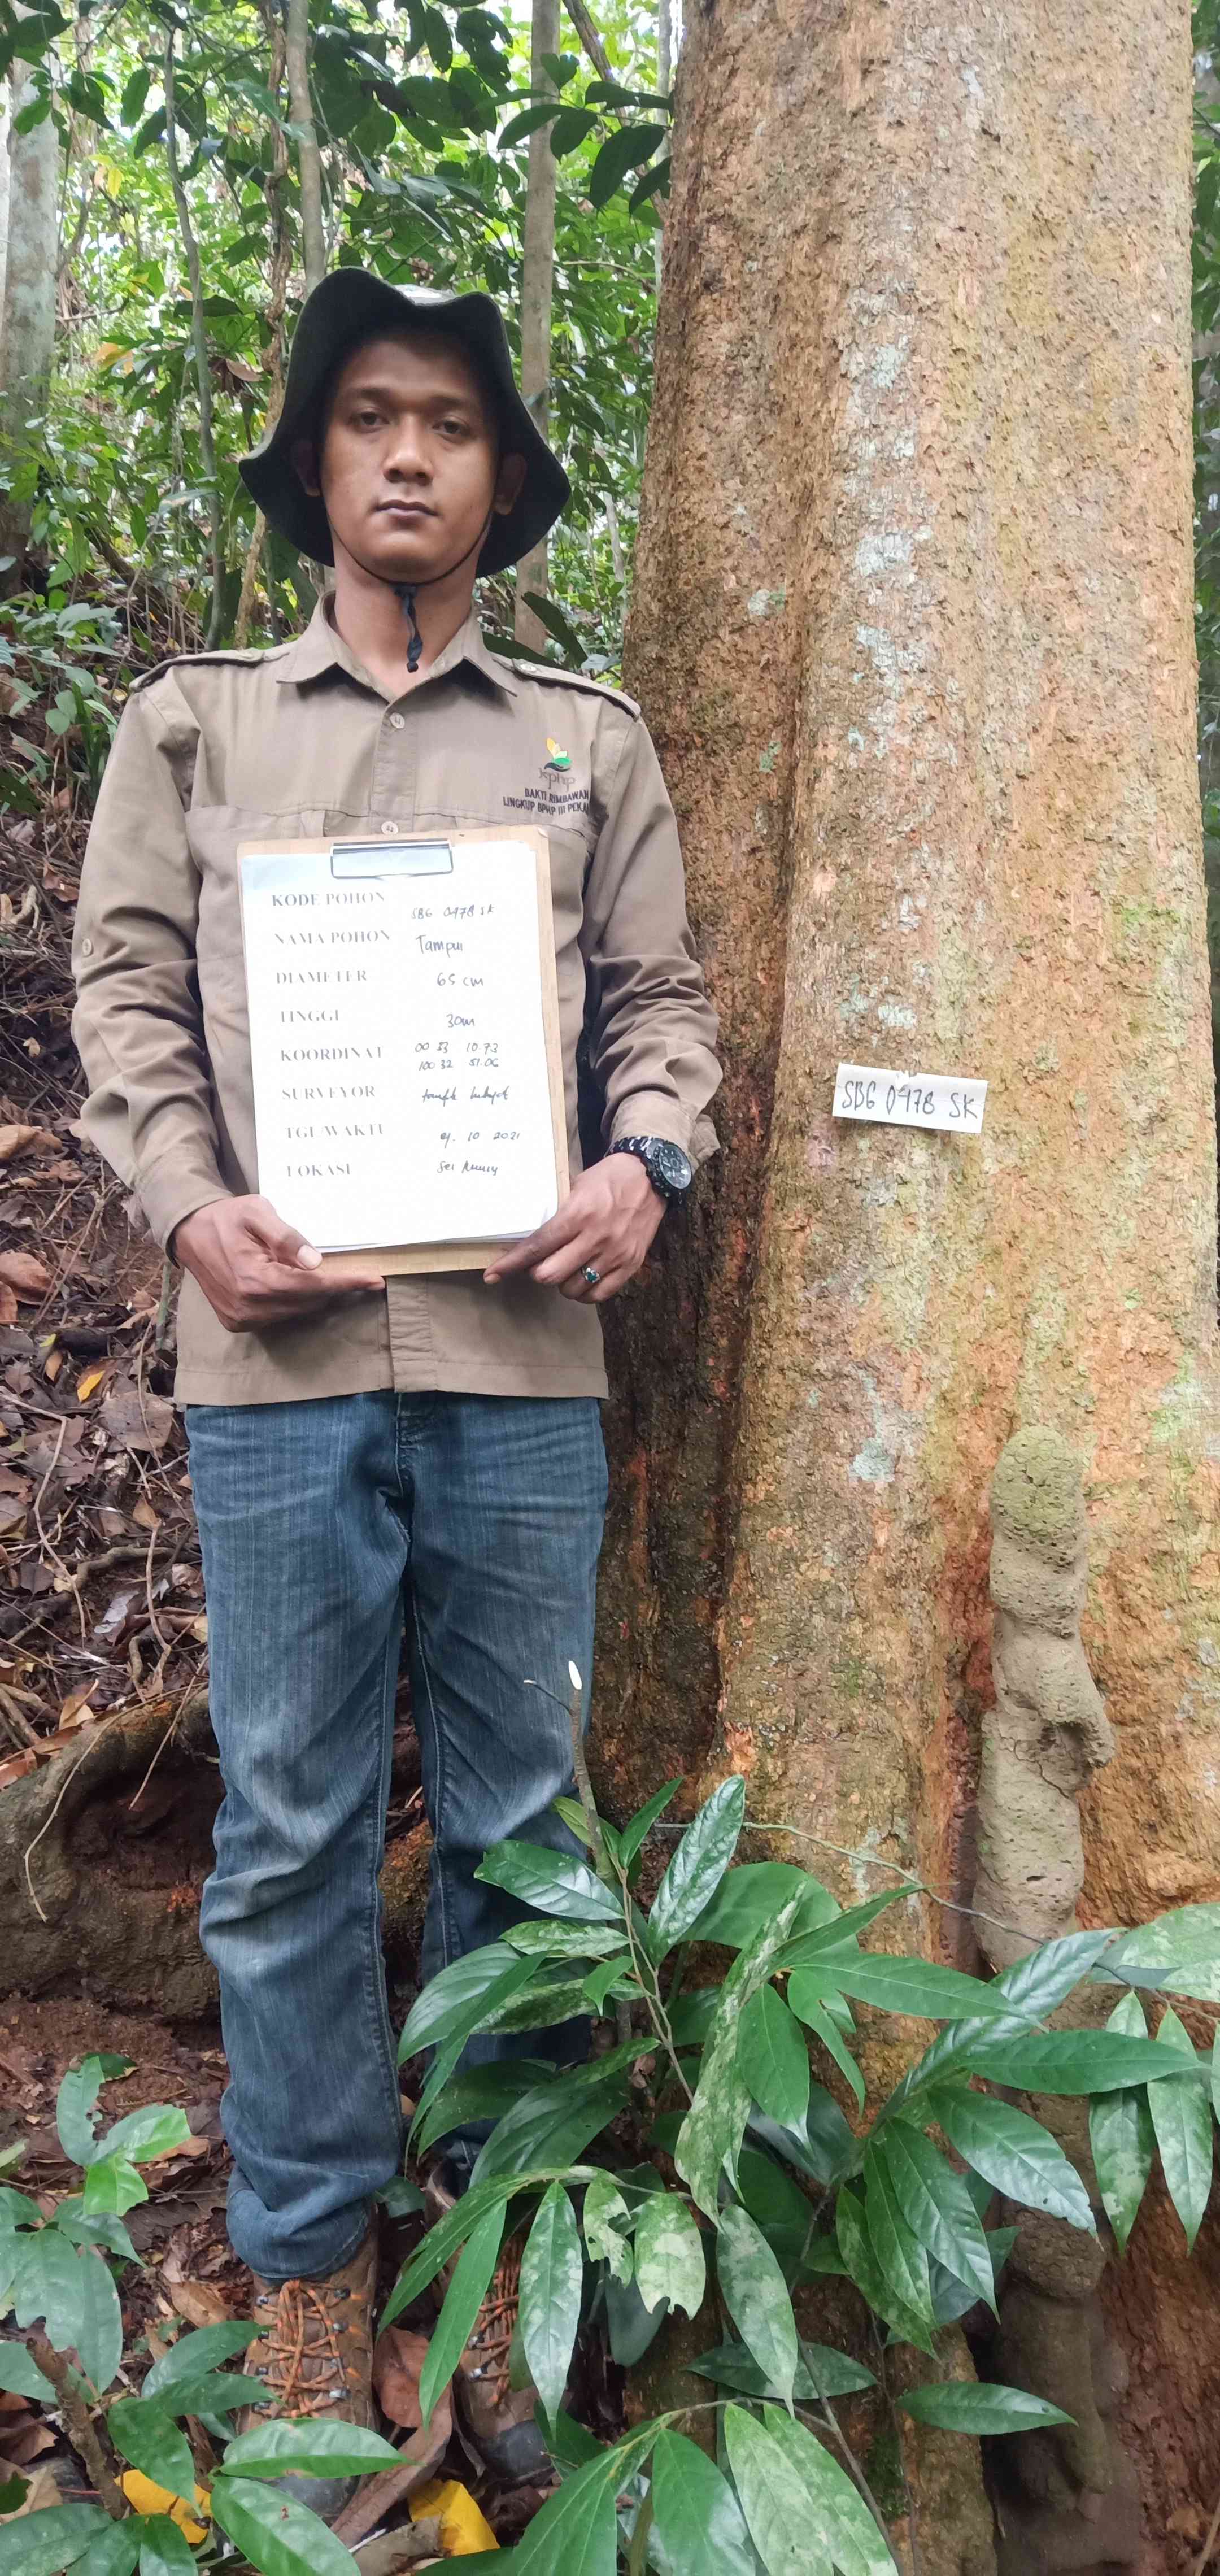 kphp
BAKTI RIMBAWAN
LINGKUP BPHP III PEKA
KODE POHON SBG 0478 SK
NAMA POHON Tampui
DIAMETER 65 cm
TINGGI 30m
KOORDINAT 00 53 10.73
100 32 51.06
SURVEYOR taufik
TGL/WAKTU 10 2021
LOKASI Sei
SBG 0478 SK